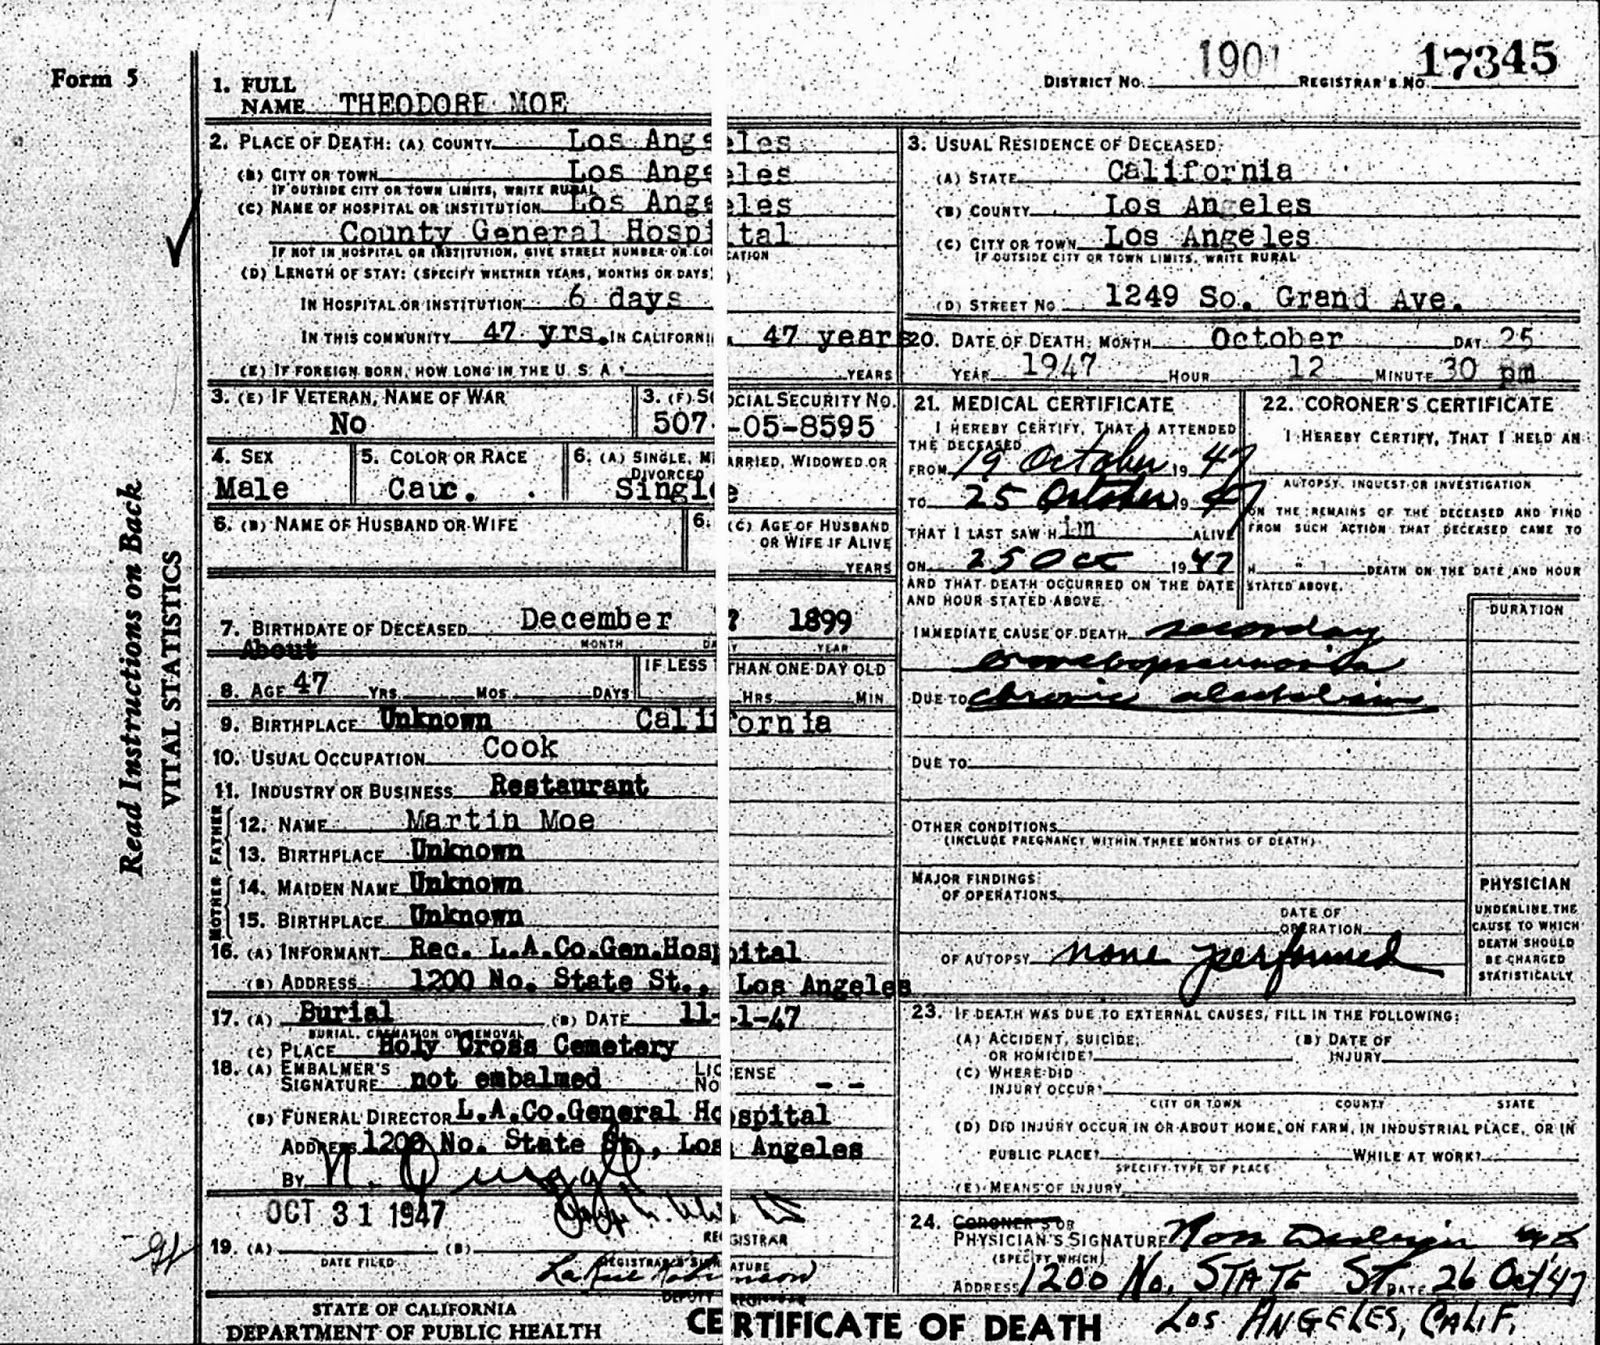 Form 5
1. FULL NAME THEODORE MOE
DISTRICT No. 1901 REGISTRAR'S No. 17345
2. PLACE OF DEATH: (A) COUNTY Los Angeles
(B) CITY OR TOWN Los Angeles
IF OUTSIDE CITY OR TOWN LIMITS, WRITE RURAL
(C) NAME OF HOSPITAL OR INSTITUTION Los Angeles
County General Hospital
IF NOT IN HOSPITAL OR INSTITUTION, GIVE STREET NUMBER OR LOCATION
(D) LENGTH OF STAY: (SPECIFY WHETHER YEARS, MONTHS OR DAYS)
IN HOSPITAL OR INSTITUTION 6 days
IN THIS COMMUNITY 47 yrs. IN CALIFORNIA 47 years
(E) IF FOREIGN BORN, HOW LONG IN THE U. S. A.? YEARS
3. USUAL RESIDENCE OF DECEASED:
(A) STATE California
(B) COUNTY Los Angeles
(C) CITY OR TOWN Los Angeles
IF OUTSIDE CITY OR TOWN LIMITS, WRITE RURAL
(D) STREET No. 1249 So. Grand Ave.
3. (E) IF VETERAN, NAME OF WAR
No
3. (F) SOCIAL SECURITY No.
507-05-8595
4. SEX
Male
5. COLOR OR RACE
Cauc.
6. (A) SINGLE, MARRIED, WIDOWED OR DIVORCED
Single
6. (B) NAME OF HUSBAND OR WIFE
6. (C) AGE OF HUSBAND
OR WIFE IF ALIVE
YEARS
7. BIRTHDATE OF DECEASED December ? 1899
MONTH DAY YEAR
About
8. AGE 47 YRS. MOS. DAYS
IF LESS THAN ONE DAY OLD
HRS. MIN
9. BIRTHPLACE Unknown California
10. USUAL OCCUPATION Cook
11. INDUSTRY OR BUSINESS Restaurant
FATHER
12. NAME Martin Moe
13. BIRTHPLACE Unknown
MOTHER
14. MAIDEN NAME Unknown
15. BIRTHPLACE Unknown
16. (A) INFORMANT Rec. L.A.Co.Gen.Hospital
(B) ADDRESS 1200 No. State St., Los Angeles
17. (A) Burial (B) DATE 11-1-47
BURIAL, CREMATION OR REMOVAL
(C) PLACE Holy Cross Cemetery
18. (A) EMBALMER'S SIGNATURE not embalmed LICENSE No. - -
(B) FUNERAL DIRECTOR L.A.Co.General Hospital
ADDRESS 1200 No. State St., Los Angeles
BY
OCT 31 1947
REGISTRAR
19. (A) (B)
DATE FILED REGISTRAR'S SIGNATURE
LaRue Robinson
DEPUTY REGISTRAR
20. DATE OF DEATH: MONTH October DAY 25
YEAR 1947 HOUR 12 MINUTE 30 pm
21. MEDICAL CERTIFICATE
I HEREBY CERTIFY, THAT I ATTENDED
THE DECEASED
FROM 19 October 19 47
TO 25 October 19 47
THAT I LAST SAW H im ALIVE
ON 25 Oct 19 47
AND THAT DEATH OCCURRED ON THE DATE
AND HOUR STATED ABOVE.
22. CORONER'S CERTIFICATE
I HEREBY CERTIFY, THAT I HELD AN
AUTOPSY, INQUEST OR INVESTIGATION
ON THE REMAINS OF THE DECEASED AND FIND
FROM SUCH ACTION THAT DECEASED CAME TO
H DEATH ON THE DATE AND HOUR
STATED ABOVE.
DURATION
IMMEDIATE CAUSE OF DEATH secondary
bronchopneumonia
DUE TO chronic alcoholism
DUE TO
OTHER CONDITIONS
(INCLUDE PREGNANCY WITHIN THREE MONTHS OF DEATH)
MAJOR FINDINGS:
OF OPERATIONS
DATE OF
OPERATION
OF AUTOPSY none performed
PHYSICIAN
UNDERLINE THE
CAUSE TO WHICH
DEATH SHOULD
BE CHARGED
STATISTICALLY
23. IF DEATH WAS DUE TO EXTERNAL CAUSES, FILL IN THE FOLLOWING:
(A) ACCIDENT, SUICIDE,
OR HOMICIDE?
(B) DATE OF
INJURY
(C) WHERE DID
INJURY OCCUR?
CITY OR TOWN COUNTY STATE
(D) DID INJURY OCCUR IN OR ABOUT HOME, ON FARM, IN INDUSTRIAL PLACE, OR IN
PUBLIC PLACE? WHILE AT WORK?
SPECIFY TYPE OF PLACE
(E) MEANS OF INJURY
24. CORONER'S OR
PHYSICIAN'S SIGNATURE
(SPECIFY WHICH)
ADDRESS 1200 No. STATE ST DATE 26 Oct '47
LOS ANGELES, CALIF.
Read Instructions on Back
VITAL STATISTICS
STATE OF CALIFORNIA
DEPARTMENT OF PUBLIC HEALTH
CERTIFICATE OF DEATH